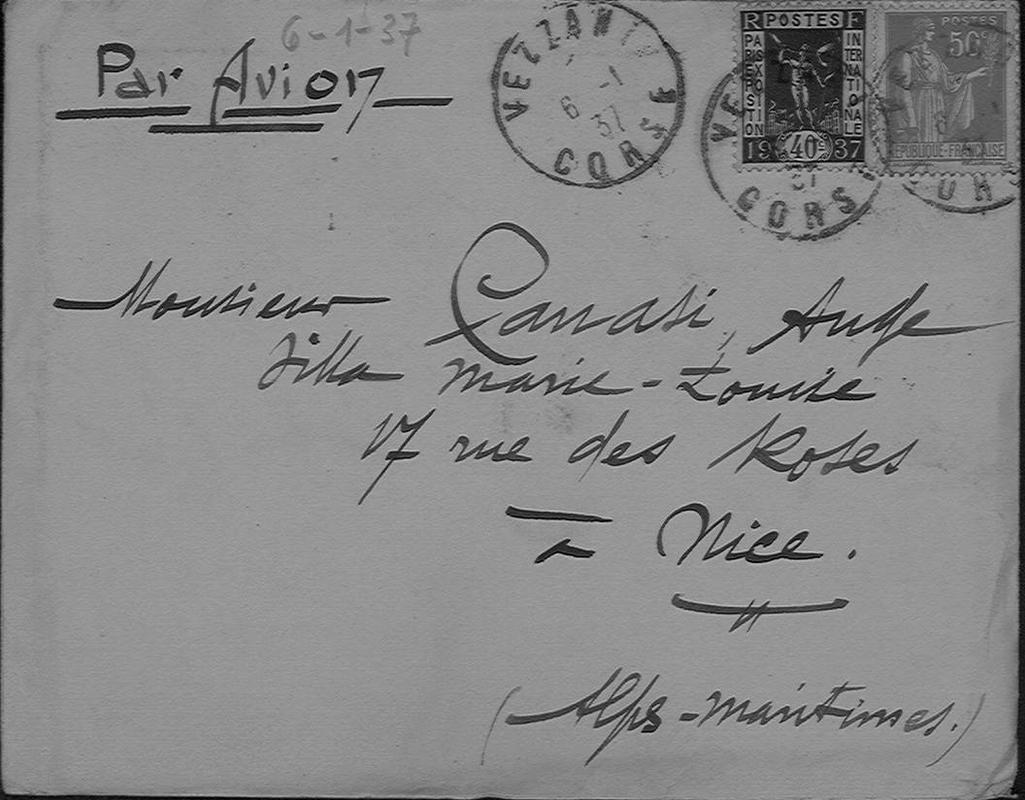 6-1-37
Par Avion
VEZZANI
6 -1
37
CORSE
R POSTES F
PARIS EXPOSITION
INTERNATIONALE
1937
40c
POSTES
50c
REPUBLIQUE-FRANÇAISE
CORS
Monsieur Canasi, Ange
Villa Marie-Louise
17 rue des Roses
à Nice.
(Alps-maritimes.)